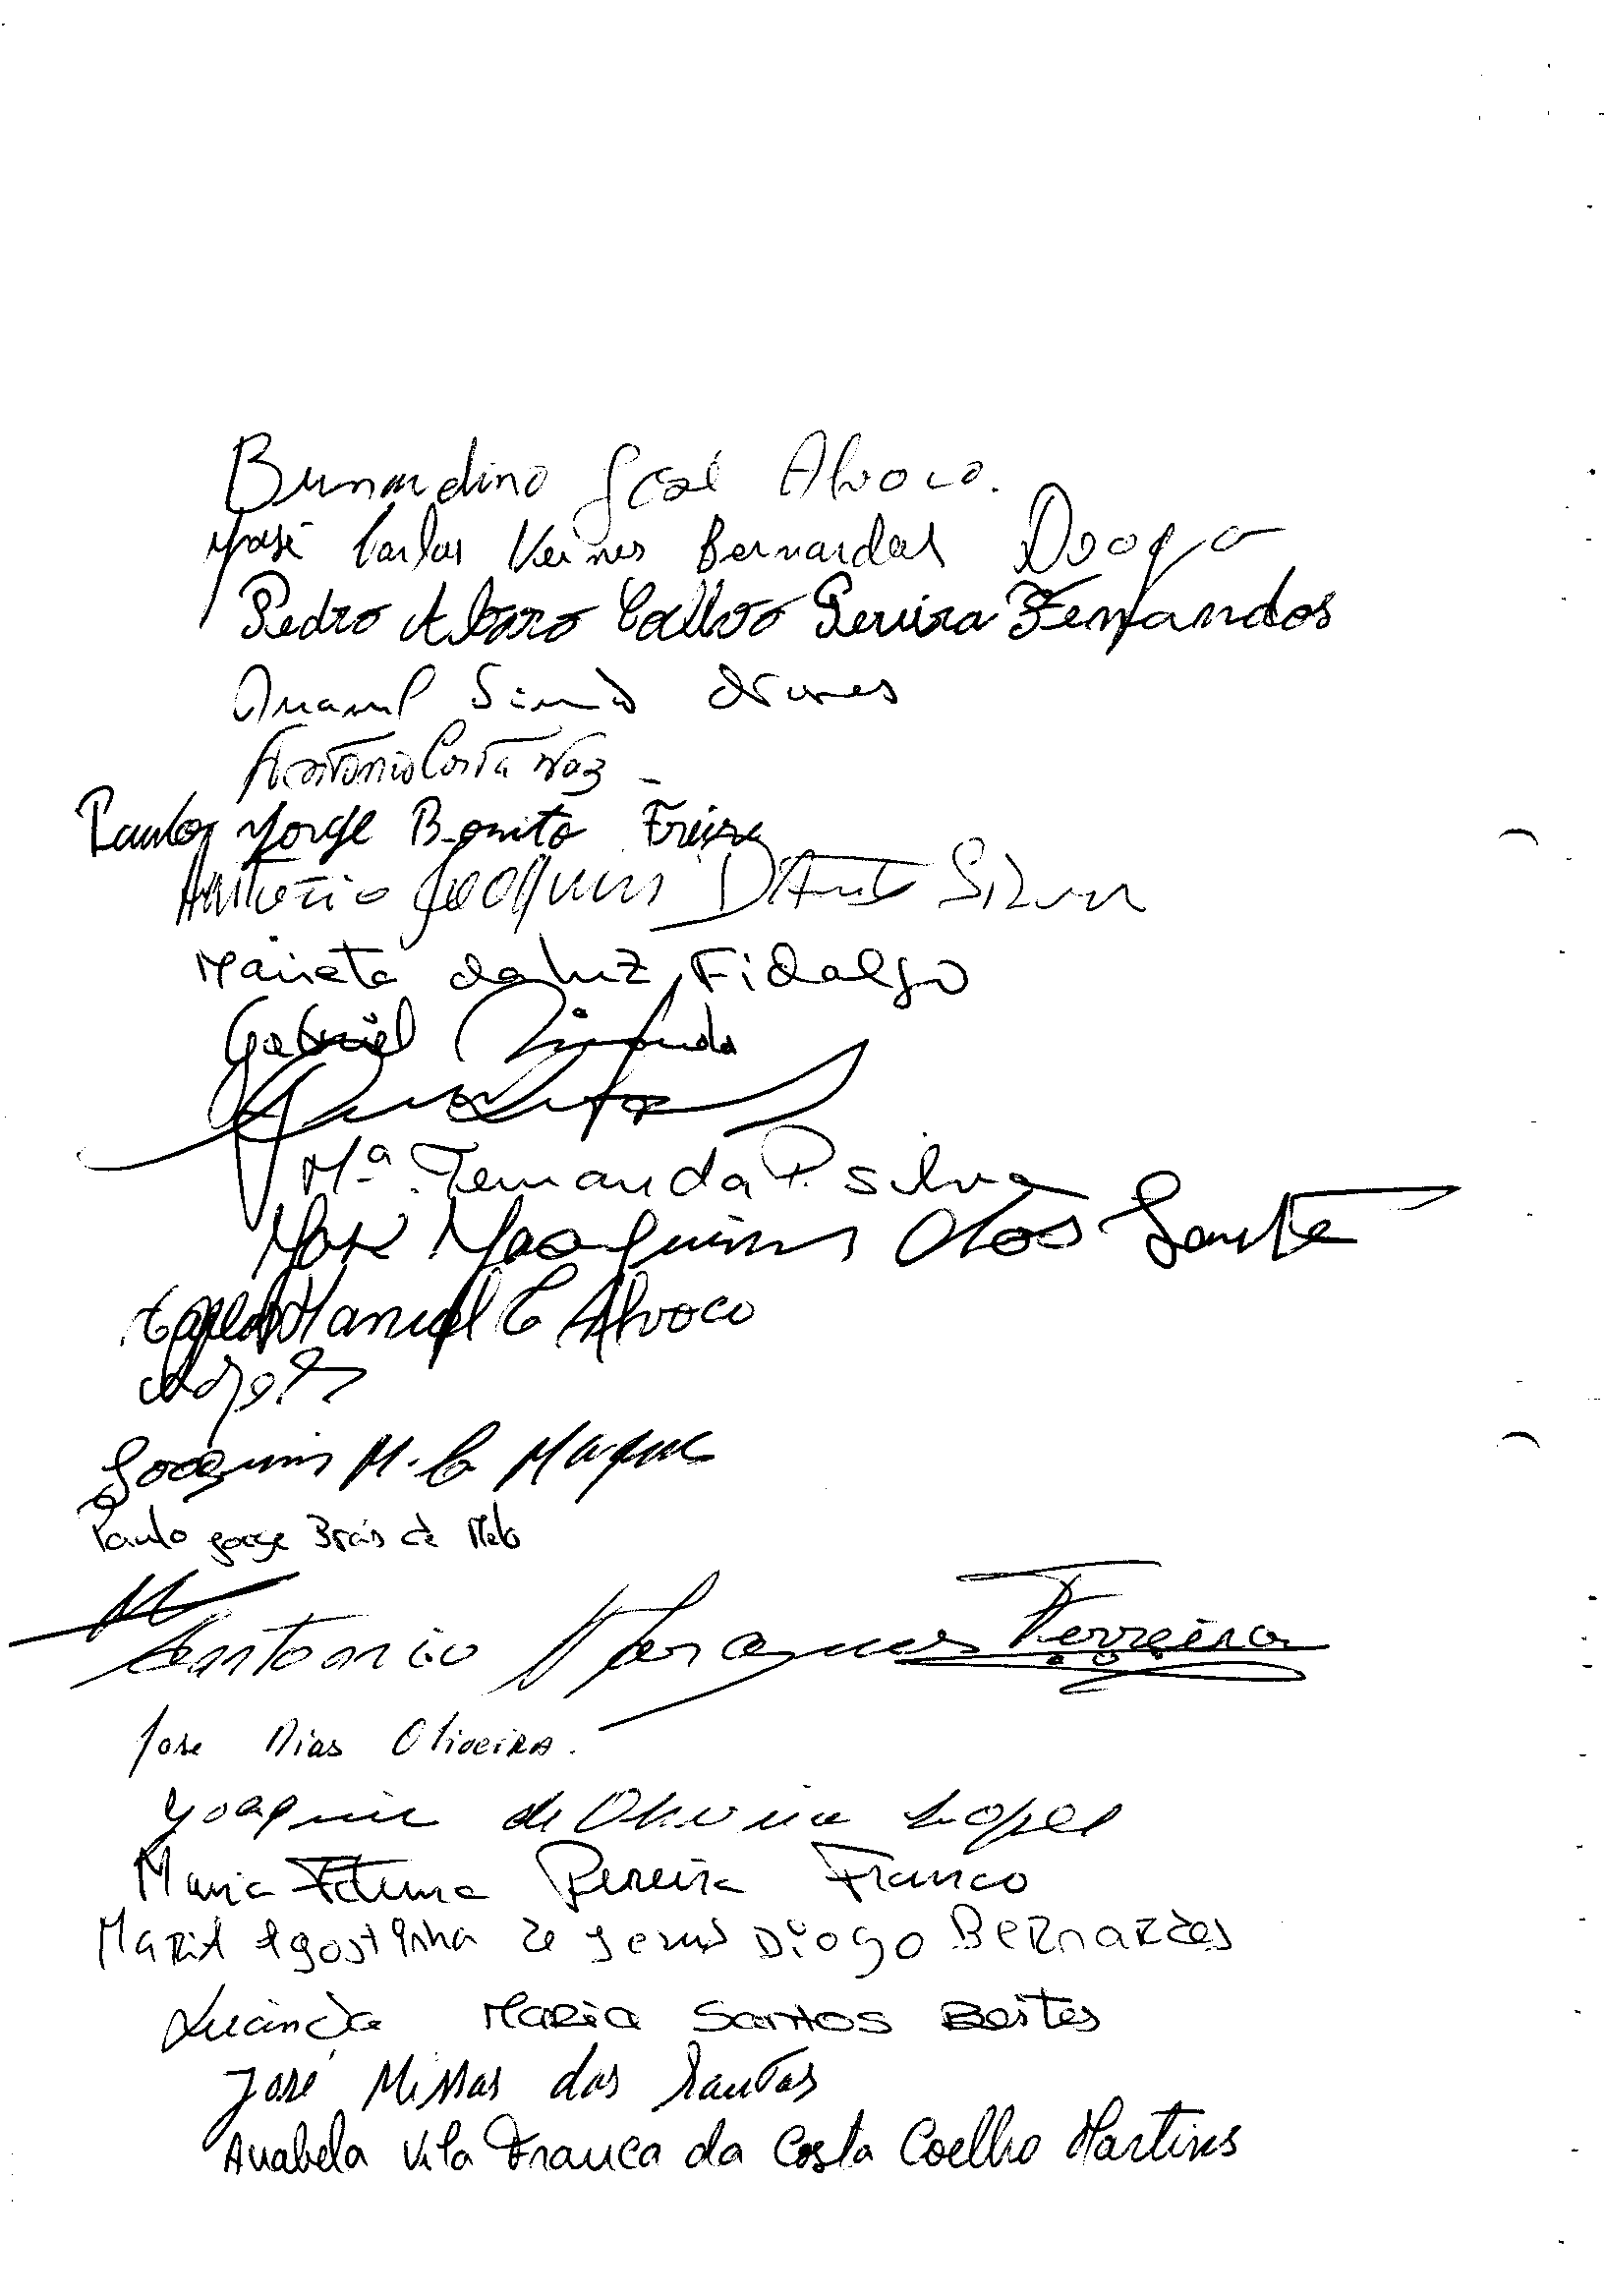 Bernardino José Alvoco.
José Carlos Bernardas Diogo
Pedro Calvo Pereira Fernandes
Manuel Simão Nunes
António Costa Vaz
Paulo Jorge Bonito Freire
António Joaquim Silva
Marieta da Luz Fidalgo
Gabriel
Mª. Fernanda P. Silva
José Joaquim dos
Manuel C Alvoco
Joaquim M. C.
Paulo Jorge Brás de Melo
Antonio Marques Ferreira
Jose Dias Oliveira.
Joaquim de Oliveira Lopes
Maria Fatima Pereira Franco
Maria Agostinha de Jesus Diogo Bernardes
Lucinda Maria Santos Beites
José Missas dos Santos
Anabela Vila Franca da Costa Coelho Martins